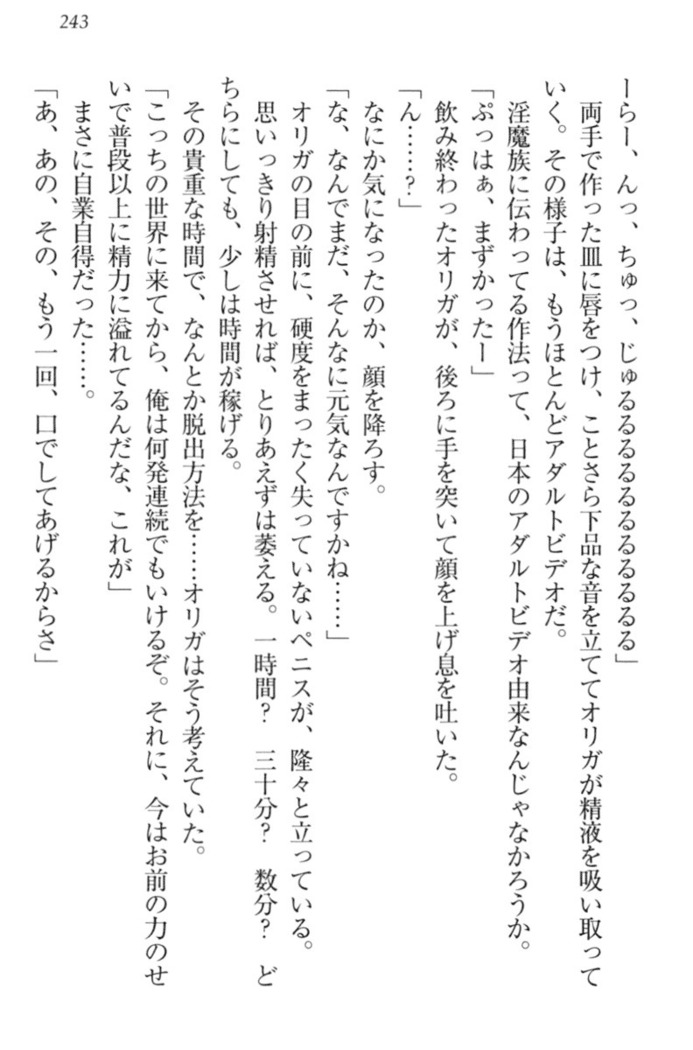 243
ーらー、んっ、ちゅっ、じゅるるるるるるるるるるる」
　両手で作った皿に唇をつけ、ことさら下品な音を立ててオリガが精液を吸い取って
いく。その様子は、もうほとんどアダルトビデオだ。
　淫魔族に伝わってる作法って、日本のアダルトビデオ由来なんじゃなかろうか。
「ぷっはぁ、まずかったー」
　飲み終わったオリガが、後ろに手を突いて顔を上げ息を吐いた。
「ん……？」
　なにか気になったのか、顔を降ろす。
「な、なんでまだ、そんなに元気なんですかね……」
　オリガの目の前に、硬度をまったく失っていないペニスが、隆々と立っている。
　思いっきり射精させれば、とりあえずは萎える。一時間？　三十分？　数分？　ど
ちらにしても、少しは時間が稼げる。
　その貴重な時間で、なんとか脱出方法を……オリガはそう考えていた。
「こっちの世界に来てから、俺は何発連続でもいけるぞ。それに、今はお前の力のせ
いで普段以上に精力に溢れてるんだな、これが」
　まさに自業自得だった……。
「あ、あの、その、もう一回、口でしてあげるからさ」